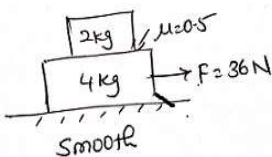 2kg
μ=0.5
4kg
F=36N
Smooth